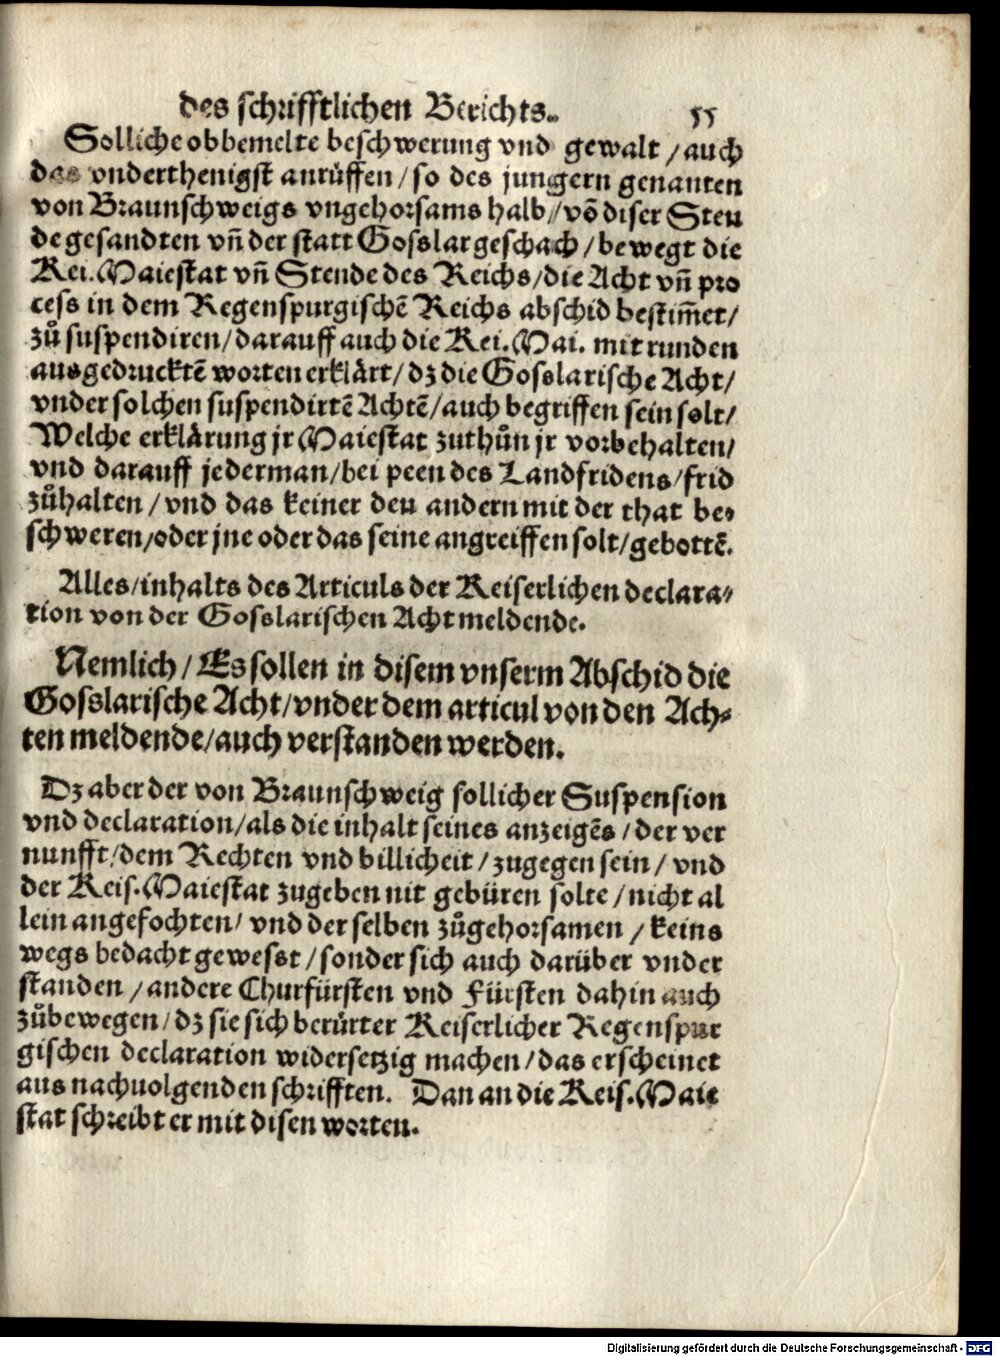 des schrifftlichen Berichts.. 55
Solliche obbemelte beschwerung vnd gewalt / auch
das vnderthenigst anrüffen / so des jungern genanten
von Braunschweigs vngehorsams halb / võ diser Steu
de gesandten vñ der statt Gosslar geschach / bewegt die
Kei. Maiestat vñ Stende des Reichs / die Acht vñ pro
cess in dem Regenspurgischẽ Reichs abschid bestim̃et /
zů suspendiren / darauff auch die Kei. Mai. mit runden
ausgedrucktẽ worten erklärt / dz die Goslarische Acht /
vnder solchen suspendirtẽ Achtẽ / auch begriffen sein solt /
Welche erklärung jr Maiestat zuthůn jr vorbehalten /
vnd darauff jederman / bei peen des Landfridens / frid
zůhalten / vnd das keiner den andern mit der that be-
schweren / oder jne oder das seine angreiffen solt / gebottẽ.
Alles / inhalts des Articuls der Keiserlichen declara-
tion von der Goslarischen Acht meldende.
Nemlich / Es sollen in disem vnserm Abschid die
Goßlarische Acht / vnder dem articul von den Ach-
ten meldende / auch verstanden werden.
Dz aber der von Braunschweig sollicher Suspension
vnd declaration / als die inhalt seines anzeigẽs / der ver
nunfft / dem Rechten vnd billicheit / zugegen sein / vnd
der Keis. Maiestat zugeben nit gebüren solte / nicht al
lein angefochten / vnd der selben zůgehorsamen / keins
wegs bedacht gewesst / sonder sich auch darüber vnder
standen / andere Churfürsten vnd Fürsten dahin auch
zůbewegen / dz sie sich berürter Keiserlicher Regenspur
gischen declaration widersetzig machen / das erscheinet
aus nachuolgenden schrifften. Dan an die Keis. Maie
stat schreibt er mit disen worten.
Digitalisierung gefördert durch die Deutsche Forschungsgemeinschaft - DFG